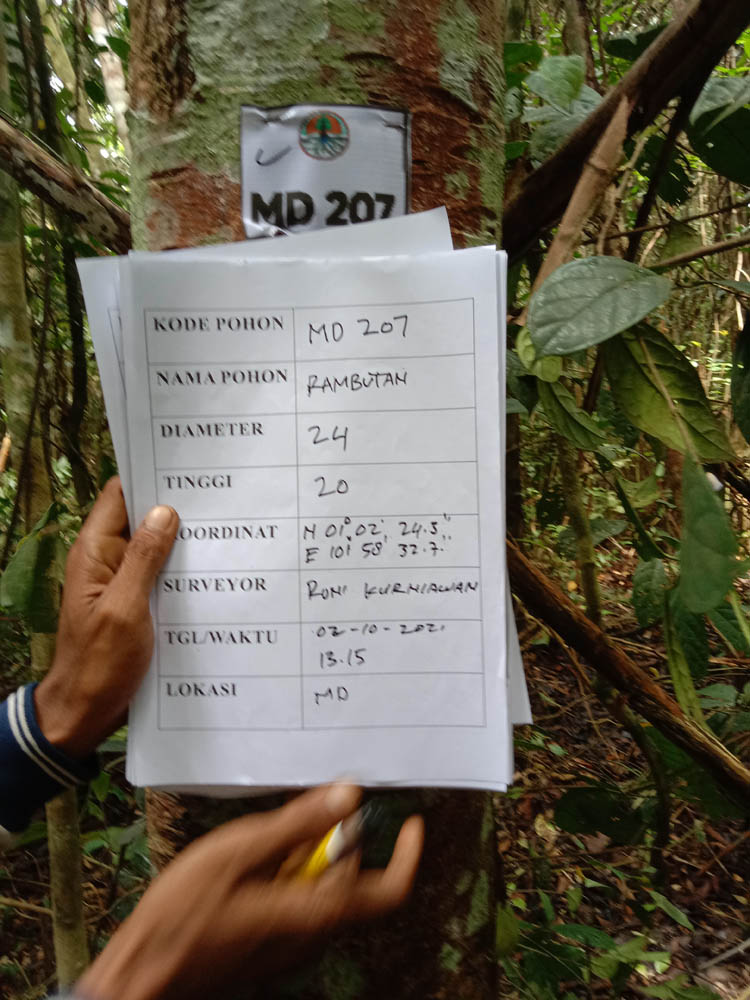 MD 207
KODE POHON MD 207
NAMA POHON RAMBUTAN
DIAMETER 24
TINGGI 20
KOORDINAT N 01° 02' 24.5"
E 101 58' 32.7"
SURVEYOR RONI KURNIAWAN
TGL/WAKTU 02-10-2021
13.15
LOKASI MD